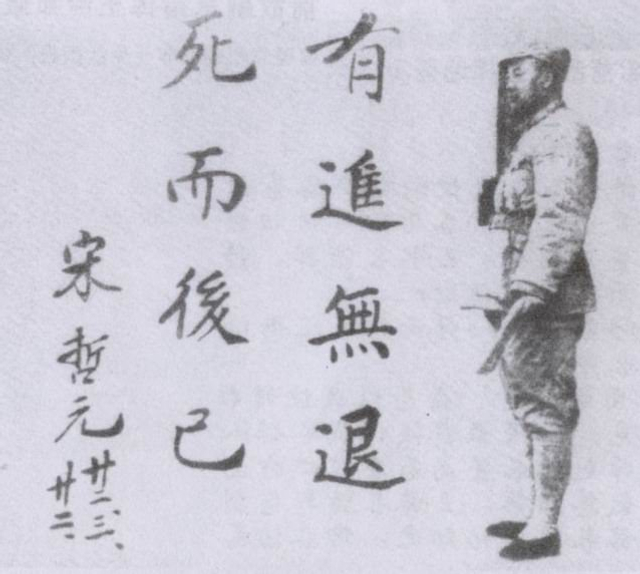 有進無退
死而後已
宋哲元
廿二、三、
廿二、